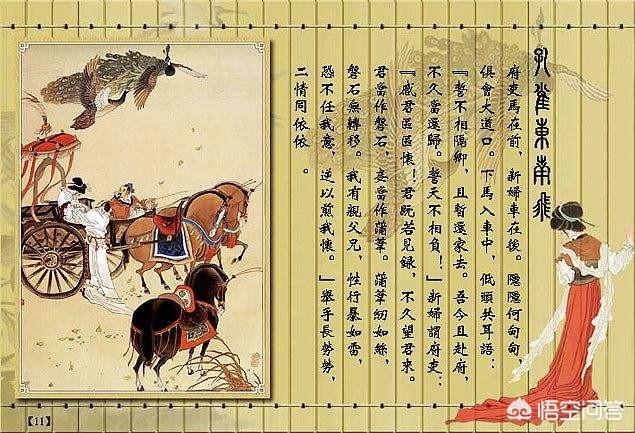 孔雀東南飛
府吏馬在前，新婦車在後。隱隱何甸甸，
俱會大道口。下馬入車中，低頭共耳語：
『誓不相隔卿，且暫還家去。吾今且赴府，
不久當還歸。誓天不相負！」新婦謂府吏：
『感君區區懷！君既若見錄，不久望君來。
君當作磐石，妾當作蒲葦。蒲葦紉如絲，
磐石無轉移。我有親父兄，性行暴如雷，
恐不任我意，逆以煎我懷。」舉手長勞勞，
二情同依依。
【11】
悟空问答